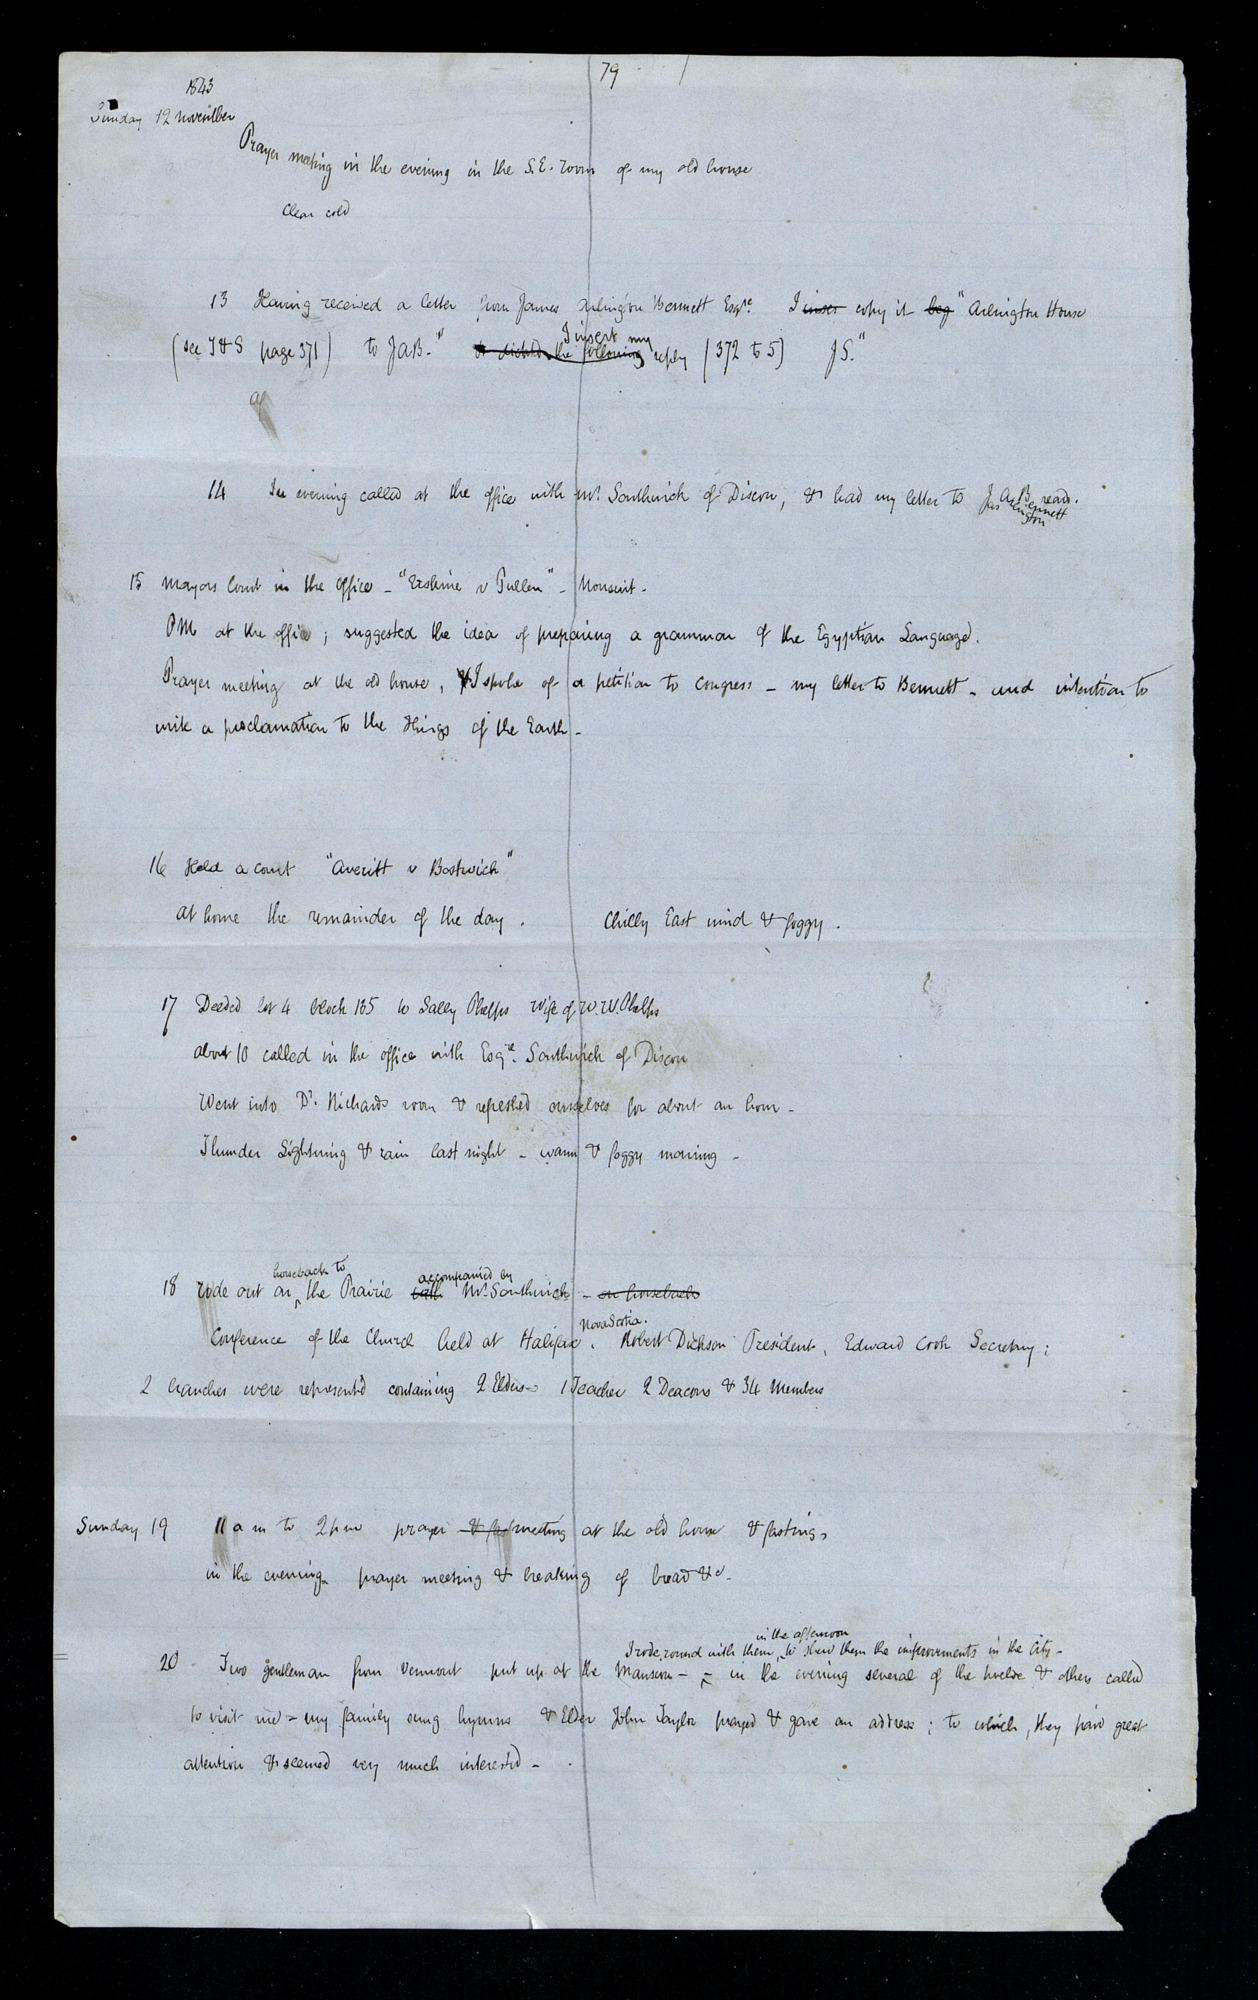 79
1843
Sunday 12 November
Prayer meeting in the evening in the S.E. room of my old house
Clear cold
13 Having received a letter from James Arlington Bennett Esqre. I inser copy it beg "Arlington House
I insert my
(see T&S page 371) to JAB." the following reply (372 to 5) JS."
14 In evening called at the office with Mr Southwick of Dixon, & had my letter to Jas Arlington Bennett read.
15 Mayors Court in the office - "Erskine v Pullen" - Nonsuit -
PM at the office; suggested the idea of preparing a grammar of the Egyptian Language.
Prayer meeting at the old house, I spoke of a petition to Congress - my letter to Bennett - and intention to
write a proclamation to the Kings of the Earth -
16 Held a court "Averitt v Bostwick"
at home the remainder of the day. Chilly East wind & foggy.
17 Deeded lot 4 block 135 to Sally Phelps wife of W.W. Phelps
about 10 called in the office with Esqre. Southwick of Dixon
Went into Dr. Richards room & refreshed ourselves for about an hour -
Thunder Lightning & rain last night - warm & foggy morning -
horseback to accompanied by
18 rode out on the Prairie with Mr Southwick - on horseback
Nova Scotia.
Conference of the Church held at Halifax, Robert Dickson President, Edward Cook Secretary;
2 branches were represent'd containing 2 Elders 1 Teacher 2 Deacons & 34 Members
Sunday 19 11 a m to 2 p m prayer & fas meeting at the old house & fasting,
in the evening prayer meeting & breaking of bread &c -
in the afternoon
I rode round with them, to shew them the improvements in the City -
20 Two gentleman from Vermont put up at the Mansion - in the evening several of the twelve & others called
to visit me - my family sung hymns & Elder John Taylor prayed & gave an address; to which, they paid great
attention & seemed very much interested -